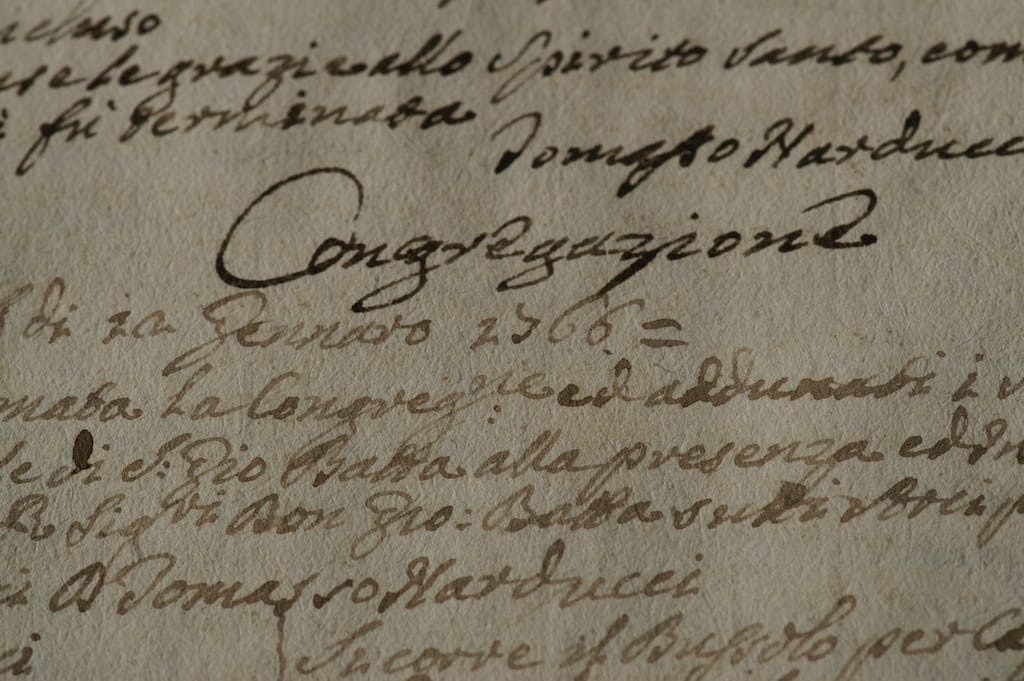 cluso
se le grazie allo Spirito Santo, com
fù terminata
Tomasso Narducci
Congregazione
di 12 Gennaro 1766 =
mata la Congreg.ne ed addunati i
le di S: Gio Batta alla presenza ed in
Sig.ri Don Gio: Batta
D Tomasso Narducci
ci Si corre il Bussolo per